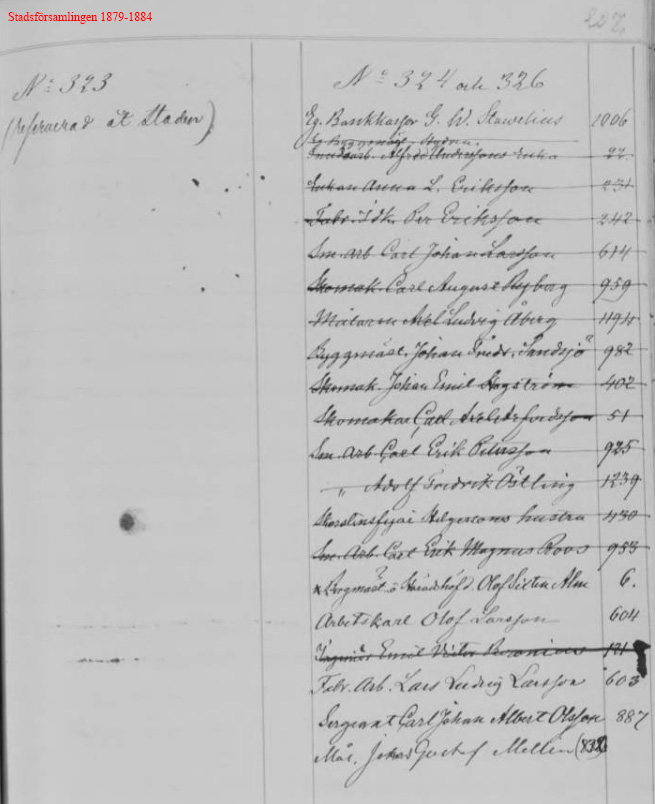 Stadsförsamlingen 1879-1884
No 323
(reserverad åt Staden)
No 324 och 326
Eg. Bankkassör G. W. Stawelius 1006
Alfred Anderssons Enka 22
Enkan Anna L. Eriksson 231
Fabr. Idk. Per Eriksson 242
Sm. Arb. Carl Johan Larsson 614
Skomak. Carl August Ryberg 959
Målaren Axel Ludvig Åberg 1194
Byggmäst. Johan Fredr. Sandsjö 982
Skomak. Johan Emil Hagström 402
Skomakar Carl Axel 51
Sm. Arb. Carl Erik Petersson 925
" Adolf Fredrik Östling 1239
hustru 430
Sm. Arb. Carl Erik Magnus Roos 953
Olof Sixten Alm 6.
Arbetskarl Olof Larsson 604
Emil Victor 121
Fabr. Arb. Lars Ludvig Larsson 603
Sergeant Carl Johan Albert Olsson 887
Mål. Johas Gustaf Mellin (832)